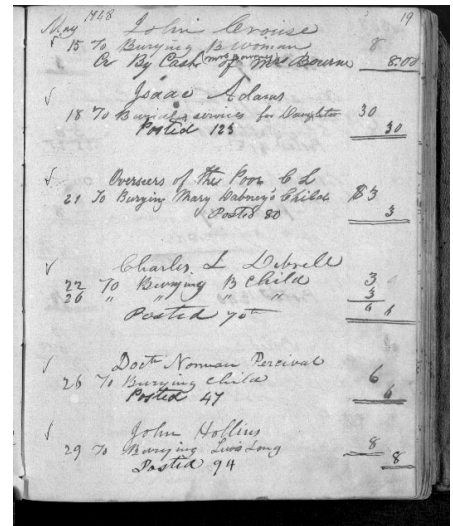 19
May 1848 John Crouse
√ 15 To Burying B Woman 8
Cr By Cash of Mrs Bourne 8.00
√ Isaac Adams
18 To Burying services for Daughter 30
Posted 123 30
√ Overseers of the Poor C L
21 To Burying Mary Dabney's Child $3
Posted 80 3
√ Charles L Dibrell
22 To Burying B Child 3
26 " " " " 3
Posted 70 6 6
√ Doctr Norman Percival
26 To Burying Child 6
Posted 47 6
√ John Hollins
29 To Burying Long 8
Posted 94 8